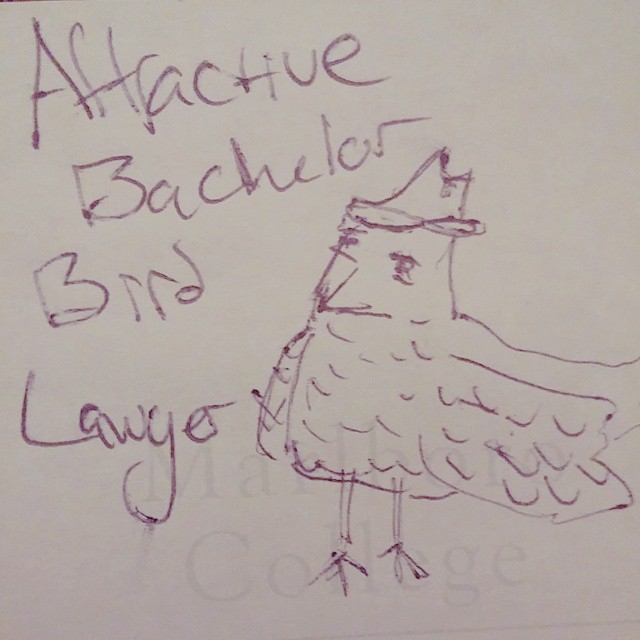 Attractive
Bachelor
Bird
Lawyer
Marlboro
College